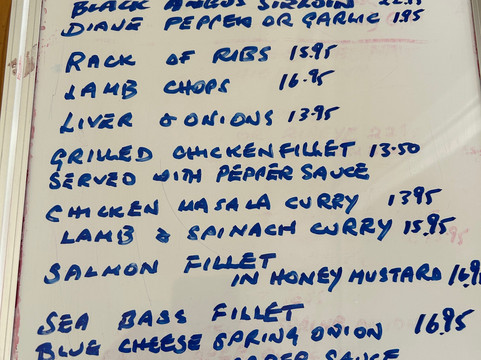 BLACK ANGUS SIRLOIN
DIANE PEPPER OR GARLIC 195
RACK OF RIBS 15.95
LAMB CHOPS 16.95
LIVER & ONIONS 13.95
GRILLED CHICKEN FILLET 13.50
SERVED WITH PEPPER SAUCE
CHICKEN MASALA CURRY 1395
LAMB & SPINACH CURRY 15.95
SALMON FILLET
IN HONEY MUSTARD
SEA BASS FILLET
BLUE CHEESE SPRING ONION 16.95
SAUCE